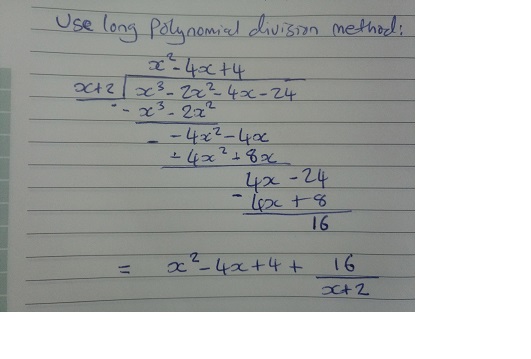 Use long Polynomial division method:
x² - 4x + 4
x+2 | x³ - 2x² - 4x - 24
- x³ - 2x²
- - 4x² - 4x
± 4x² + 8x
4x - 24
- 4x + 8
16
= x² - 4x + 4 + 16
x+2